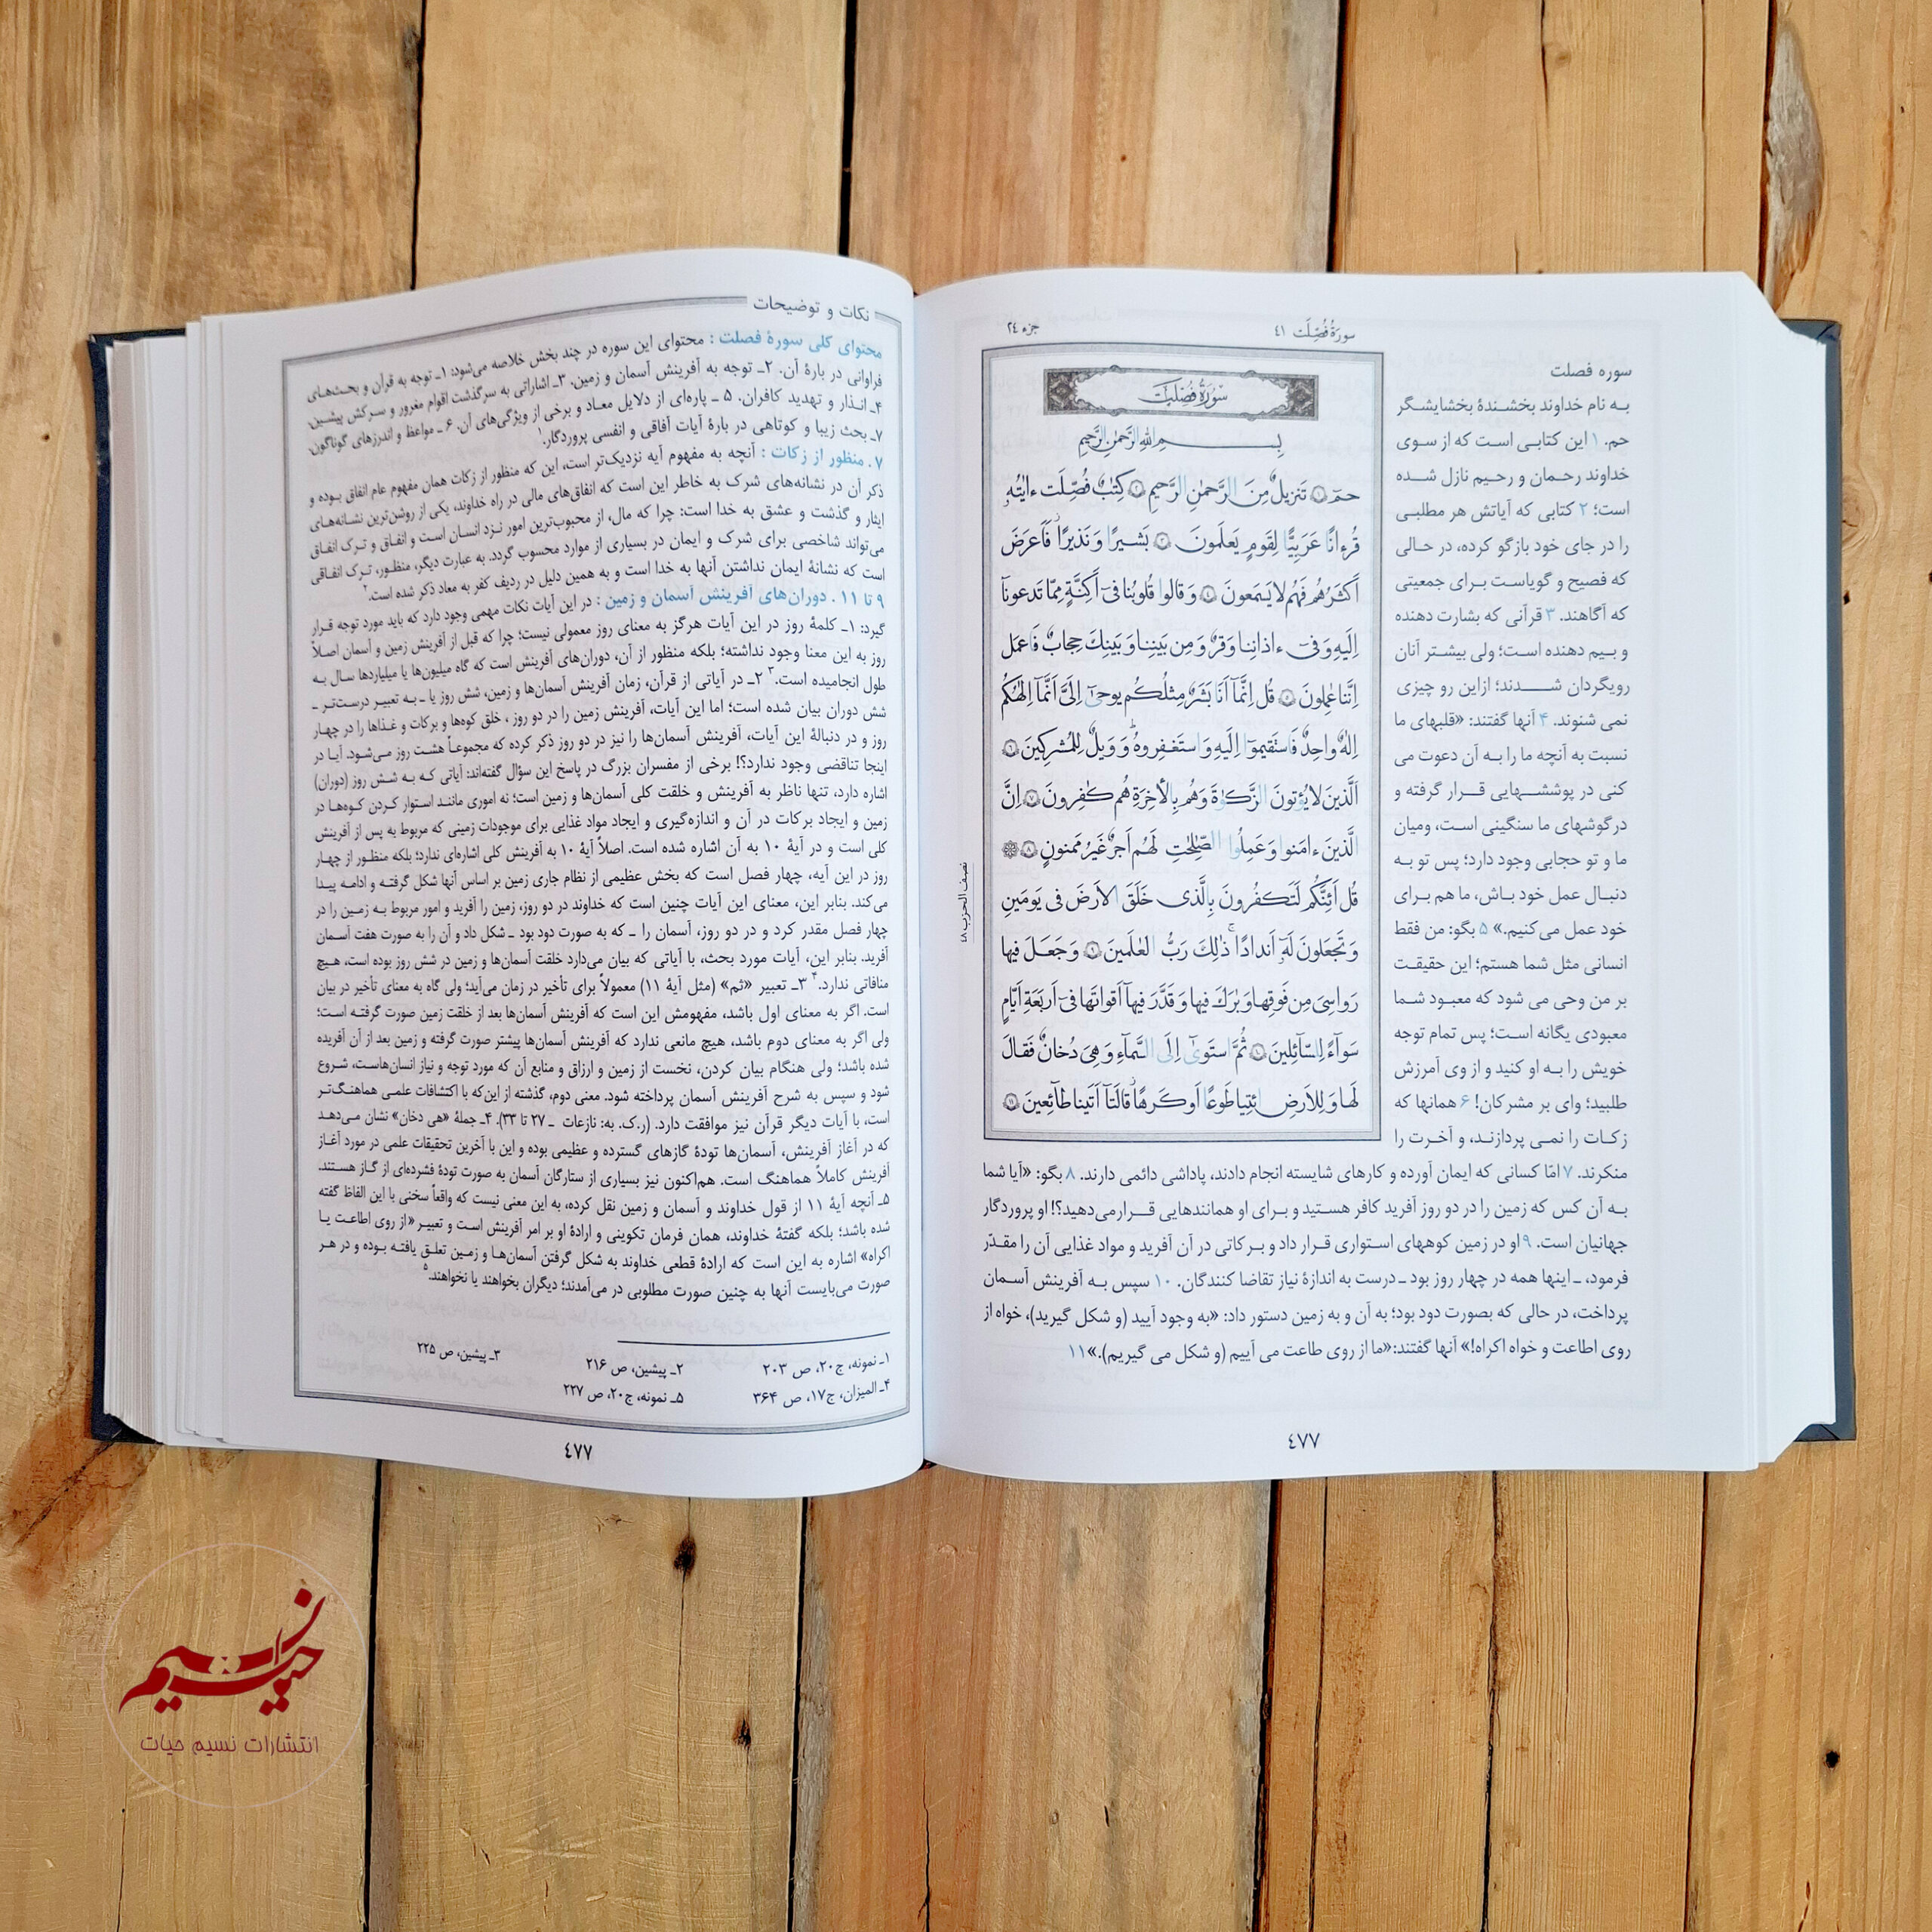 سورة فُصِّلَت ٤١
جزء ٢٤
سوره فصلت
به نام خداوند بخشندهٔ بخشایشگر
حم. ۱ این کتابی است که از سوی
خداوند رحمان و رحیم نازل شده
است؛ ۲ کتابی که آیاتش هر مطلبی
را در جای خود بازگو کرده، در حالی
که فصیح و گویاست برای جمعیتی
که آگاهند. ۳ قرآنی که بشارت دهنده
و بیم دهنده است؛ ولی بیشتر آنان
رویگردان شدند؛ ازاین رو چیزی
نمی شنوند. ۴ آنها گفتند: «قلبهای ما
نسبت به آنچه ما را به آن دعوت می
کنی در پوششهایی قرار گرفته و
درگوشهای ما سنگینی است، ومیان
ما و تو حجابی وجود دارد؛ پس تو به
دنبال عمل خود باش، ما هم برای
خود عمل می‌کنیم.» ۵ بگو: من فقط
انسانی مثل شما هستم؛ این حقیقت
بر من وحی می شود که معبود شما
معبودی یگانه است؛ پس تمام توجه
خویش را به او کنید و از وی آمرزش
طلبید؛ وای بر مشرکان! ۶ همانها که
زکات را نمی پردازند، و آخرت را
منکرند. ۷ امّا کسانی که ایمان آورده و کارهای شایسته انجام دادند، پاداشی دائمی دارند. ۸ بگو: «آیا شما
به آن کس که زمین را در دو روز آفرید کافر هستید و برای او همانندهایی قرارمی‌دهید؟! او پروردگار
جهانیان است. ۹ او در زمین کوههای استواری قرار داد و برکاتی در آن آفرید و مواد غذایی آن را مقدّر
فرمود، ـ اینها همه در چهار روز بود ـ درست به اندازهٔ نیاز تقاضا کنندگان. ۱۰ سپس به آفرینش آسمان
پرداخت، در حالی که بصورت دود بود؛ به آن و به زمین دستور داد: «به وجود آیید (و شکل گیرید)، خواه از
روی اطاعت و خواه اکراه!» آنها گفتند:«ما از روی طاعت می آییم (و شکل می گیریم).» ۱۱
سُورَةُ فُصِّلَت
بِسمِ اللهِ الرَّحمٰنِ الرَّحیمِ
حمٓ ١ تَنزیلٌ مِنَ الرَّحمٰنِ الرَّحیمِ ٢ کِتٰبٌ فُصِّلَت ءایٰتُهٗ
قُرءانًا عَرَبِیًّا لِقَومٍ یَعلَمونَ ٣ بَشیرًا وَنَذیرًا فَاَعرَضَ
اَکثَرُهُم فَهُم لا یَسمَعونَ ٤ وَقالوا قُلوبُنا فیٓ اَکِنَّةٍ مِمّا تَدعونآ
اِلَیهِ وَفیٓ ءاذانِنا وَقرٌ وَمِن بَینِنا وَبَینِکَ حِجابٌ فَاعمَل
اِنَّنا عٰمِلونَ ٥ قُل اِنَّمآ اَنَا بَشَرٌ مِثلُکُم یوحیٰٓ اِلَیَّ اَنَّمآ اِلٰهُکُم
اِلٰهٌ واحِدٌ فَاستَقیموٓا اِلَیهِ وَاستَغفِروهُ وَوَیلٌ لِلمُشرِکینَ ٦
اَلَّذینَ لا یُؤتونَ الزَّکوٰةَ وَهُم بِالأخِرَةِ هُم کٰفِرونَ ٧ اِنَّ
الَّذینَ ءامَنوا وَعَمِلُوا الصّٰلِحٰتِ لَهُم اَجرٌ غَیرُ مَمنونٍ ٨
قُل اَئِنَّکُم لَتَکفُرونَ بِالَّذی خَلَقَ الاَرضَ فی یَومَینِ
وَتَجعَلونَ لَهٗٓ اَندادًا ذٰلِکَ رَبُّ العٰلَمینَ ٩ وَجَعَلَ فیها
رَواسِیَ مِن فَوقِها وَبٰرَکَ فیها وَقَدَّرَ فیهآ اَقواتَها فیٓ اَربَعَةِ اَیّامٍ
سَوآءً لِلسّآئِلینَ ١٠ ثُمَّ استَویٰٓ اِلَی السَّمآءِ وَهِیَ دُخانٌ فَقالَ
لَها وَلِلاَرضِ ائتِیا طَوعًا اَو کَرهًا قالَتآ اَتَینا طآئِعینَ ١١
نصف الحزب ٤٨
٤٧٧
نکات و توضیحات
محتوای کلی سورهٔ فصلت : محتوای این سوره در چند بخش خلاصه می‌شود: ۱ـ توجه به قرآن و بحث‌های
فراوانی در بارهٔ آن. ۲ـ توجه به آفرینش آسمان و زمین. ۳ـ اشاراتی به سرگذشت اقوام مغرور و سرکش پیشین.
۴ـ انذار و تهدید کافران. ۵ ـ پاره‌ای از دلایل معاد و برخی از ویژگی‌های آن. ۶ ـ مواعظ و اندرزهای گوناگون.
۷ـ بحث زیبا و کوتاهی در بارهٔ آیات آفاقی و انفسی پروردگار.۱
۷ . منظور از زکات : آنچه به مفهوم آیه نزدیک‌تر است، این که منظور از زکات همان مفهوم عام انفاق بوده و
ذکر آن در نشانه‌های شرک به خاطر این است که انفاق‌های مالی در راه خداوند، یکی از روشن‌ترین نشانه‌های
ایثار و گذشت و عشق به خدا است: چرا که مال، از محبوب‌ترین امور نزد انسان است و انفاق و ترک انفاق
می‌تواند شاخصی برای شرک و ایمان در بسیاری از موارد محسوب گردد. به عبارت دیگر، منظور، ترک انفاقی
است که نشانهٔ ایمان نداشتن آنها به خدا است و به همین دلیل در ردیف کفر به معاد ذکر شده است.۲
۹ تا ۱۱ . دوران‌های آفرینش آسمان و زمین : در این آیات نکات مهمی وجود دارد که باید مورد توجه قرار
گیرد: ۱ـ کلمهٔ روز در این آیات هرگز به معنای روز معمولی نیست؛ چرا که قبل از آفرینش زمین و آسمان اصلاً
روز به این معنا وجود نداشته؛ بلکه منظور از آن، دوران‌های آفرینش است که گاه میلیون‌ها یا میلیاردها سال به
طول انجامیده است.۳ ۲ـ در آیاتی از قرآن، زمان آفرینش آسمان‌ها و زمین، شش روز یا ـ به تعبیر درست‌تر ـ
شش دوران بیان شده است؛ اما این آیات، آفرینش زمین را در دو روز ، خلق کوه‌ها و برکات و غذاها را در چهار
روز و در دنبالهٔ این آیات، آفرینش آسمان‌ها را نیز در دو روز ذکر کرده که مجموعاً هشت روز می‌شود. آیا در
اینجا تناقضی وجود ندارد؟! برخی از مفسران بزرگ در پاسخ این سؤال گفته‌اند: آیاتی که به شش روز (دوران)
اشاره دارد، تنها ناظر به آفرینش و خلقت کلی آسمان‌ها و زمین است؛ نه اموری مانند استوار کردن کوه‌ها در
زمین و ایجاد برکات در آن و اندازه‌گیری و ایجاد مواد غذایی برای موجودات زمینی که مربوط به پس از آفرینش
کلی است و در آیهٔ ۱۰ به آن اشاره شده است. اصلاً آیهٔ ۱۰ به آفرینش کلی اشاره‌ای ندارد؛ بلکه منظور از چهار
روز در این آیه، چهار فصل است که بخش عظیمی از نظام جاری زمین بر اساس آنها شکل گرفته و ادامه پیدا
می‌کند. بنابر این، معنای این آیات چنین است که خداوند در دو روز، زمین را آفرید و امور مربوط به زمین را در
چهار فصل مقدر کرد و در دو روز، آسمان را ـ که به صورت دود بود ـ شکل داد و آن را به صورت هفت آسمان
آفرید. بنابر این، آیات مورد بحث، با آیاتی که بیان می‌دارد خلقت آسمان‌ها و زمین در شش روز بوده است، هیچ
منافاتی ندارد.۴ ۳ـ تعبیر «ثم» (مثل آیهٔ ۱۱) معمولاً برای تأخیر در زمان می‌آید؛ ولی گاه به معنای تأخیر در بیان
است. اگر به معنای اول باشد، مفهومش این است که آفرینش آسمان‌ها بعد از خلقت زمین صورت گرفته است؛
ولی اگر به معنای دوم باشد، هیچ مانعی ندارد که آفرینش آسمان‌ها پیشتر صورت گرفته و زمین بعد از آن آفریده
شده باشد؛ ولی هنگام بیان کردن، نخست از زمین و ارزاق و منابع آن که مورد توجه و نیاز انسان‌هاست، شروع
شود و سپس به شرح آفرینش آسمان پرداخته شود. معنی دوم، گذشته از این‌که با اکتشافات علمی هماهنگ‌تر
است، با آیات دیگر قرآن نیز موافقت دارد. (ر.ک. به: نازعات ـ ۲۷ تا ۳۳). ۴ـ جملهٔ «هی دخان» نشان می‌دهد
که در آغاز آفرینش، آسمان‌ها تودهٔ گازهای گسترده و عظیمی بوده و این با آخرین تحقیقات علمی در مورد آغاز
آفرینش کاملاً هماهنگ است. هم‌اکنون نیز بسیاری از ستارگان آسمان به صورت تودهٔ فشرده‌ای از گاز هستند.
۵ـ آنچه آیهٔ ۱۱ از قول خداوند و آسمان و زمین نقل کرده، به این معنی نیست که واقعاً سخنی با این الفاظ گفته
شده باشد؛ بلکه گفتهٔ خداوند، همان فرمان تکوینی و ارادهٔ او بر امر آفرینش است و تعبیر «از روی اطاعت یا
اکراه» اشاره به این است که ارادهٔ قطعی خداوند به شکل گرفتن آسمان‌ها و زمین تعلق یافته بوده و در هر
صورت می‌بایست آنها به چنین صورت مطلوبی در می‌آمدند؛ دیگران بخواهند یا نخواهند.۵
۱ـ نمونه، ج۲۰، ص ۲۰۳ ۲ـ پیشین، ص ۲۱۶ ۳ـ پیشین، ص ۲۲۵
۴ـ المیزان، ج۱۷، ص ۳۶۴ ۵ـ نمونه، ج۲۰، ص ۲۲۷
٤٧٧
نسیم حیات
انتشارات نسیم حیات